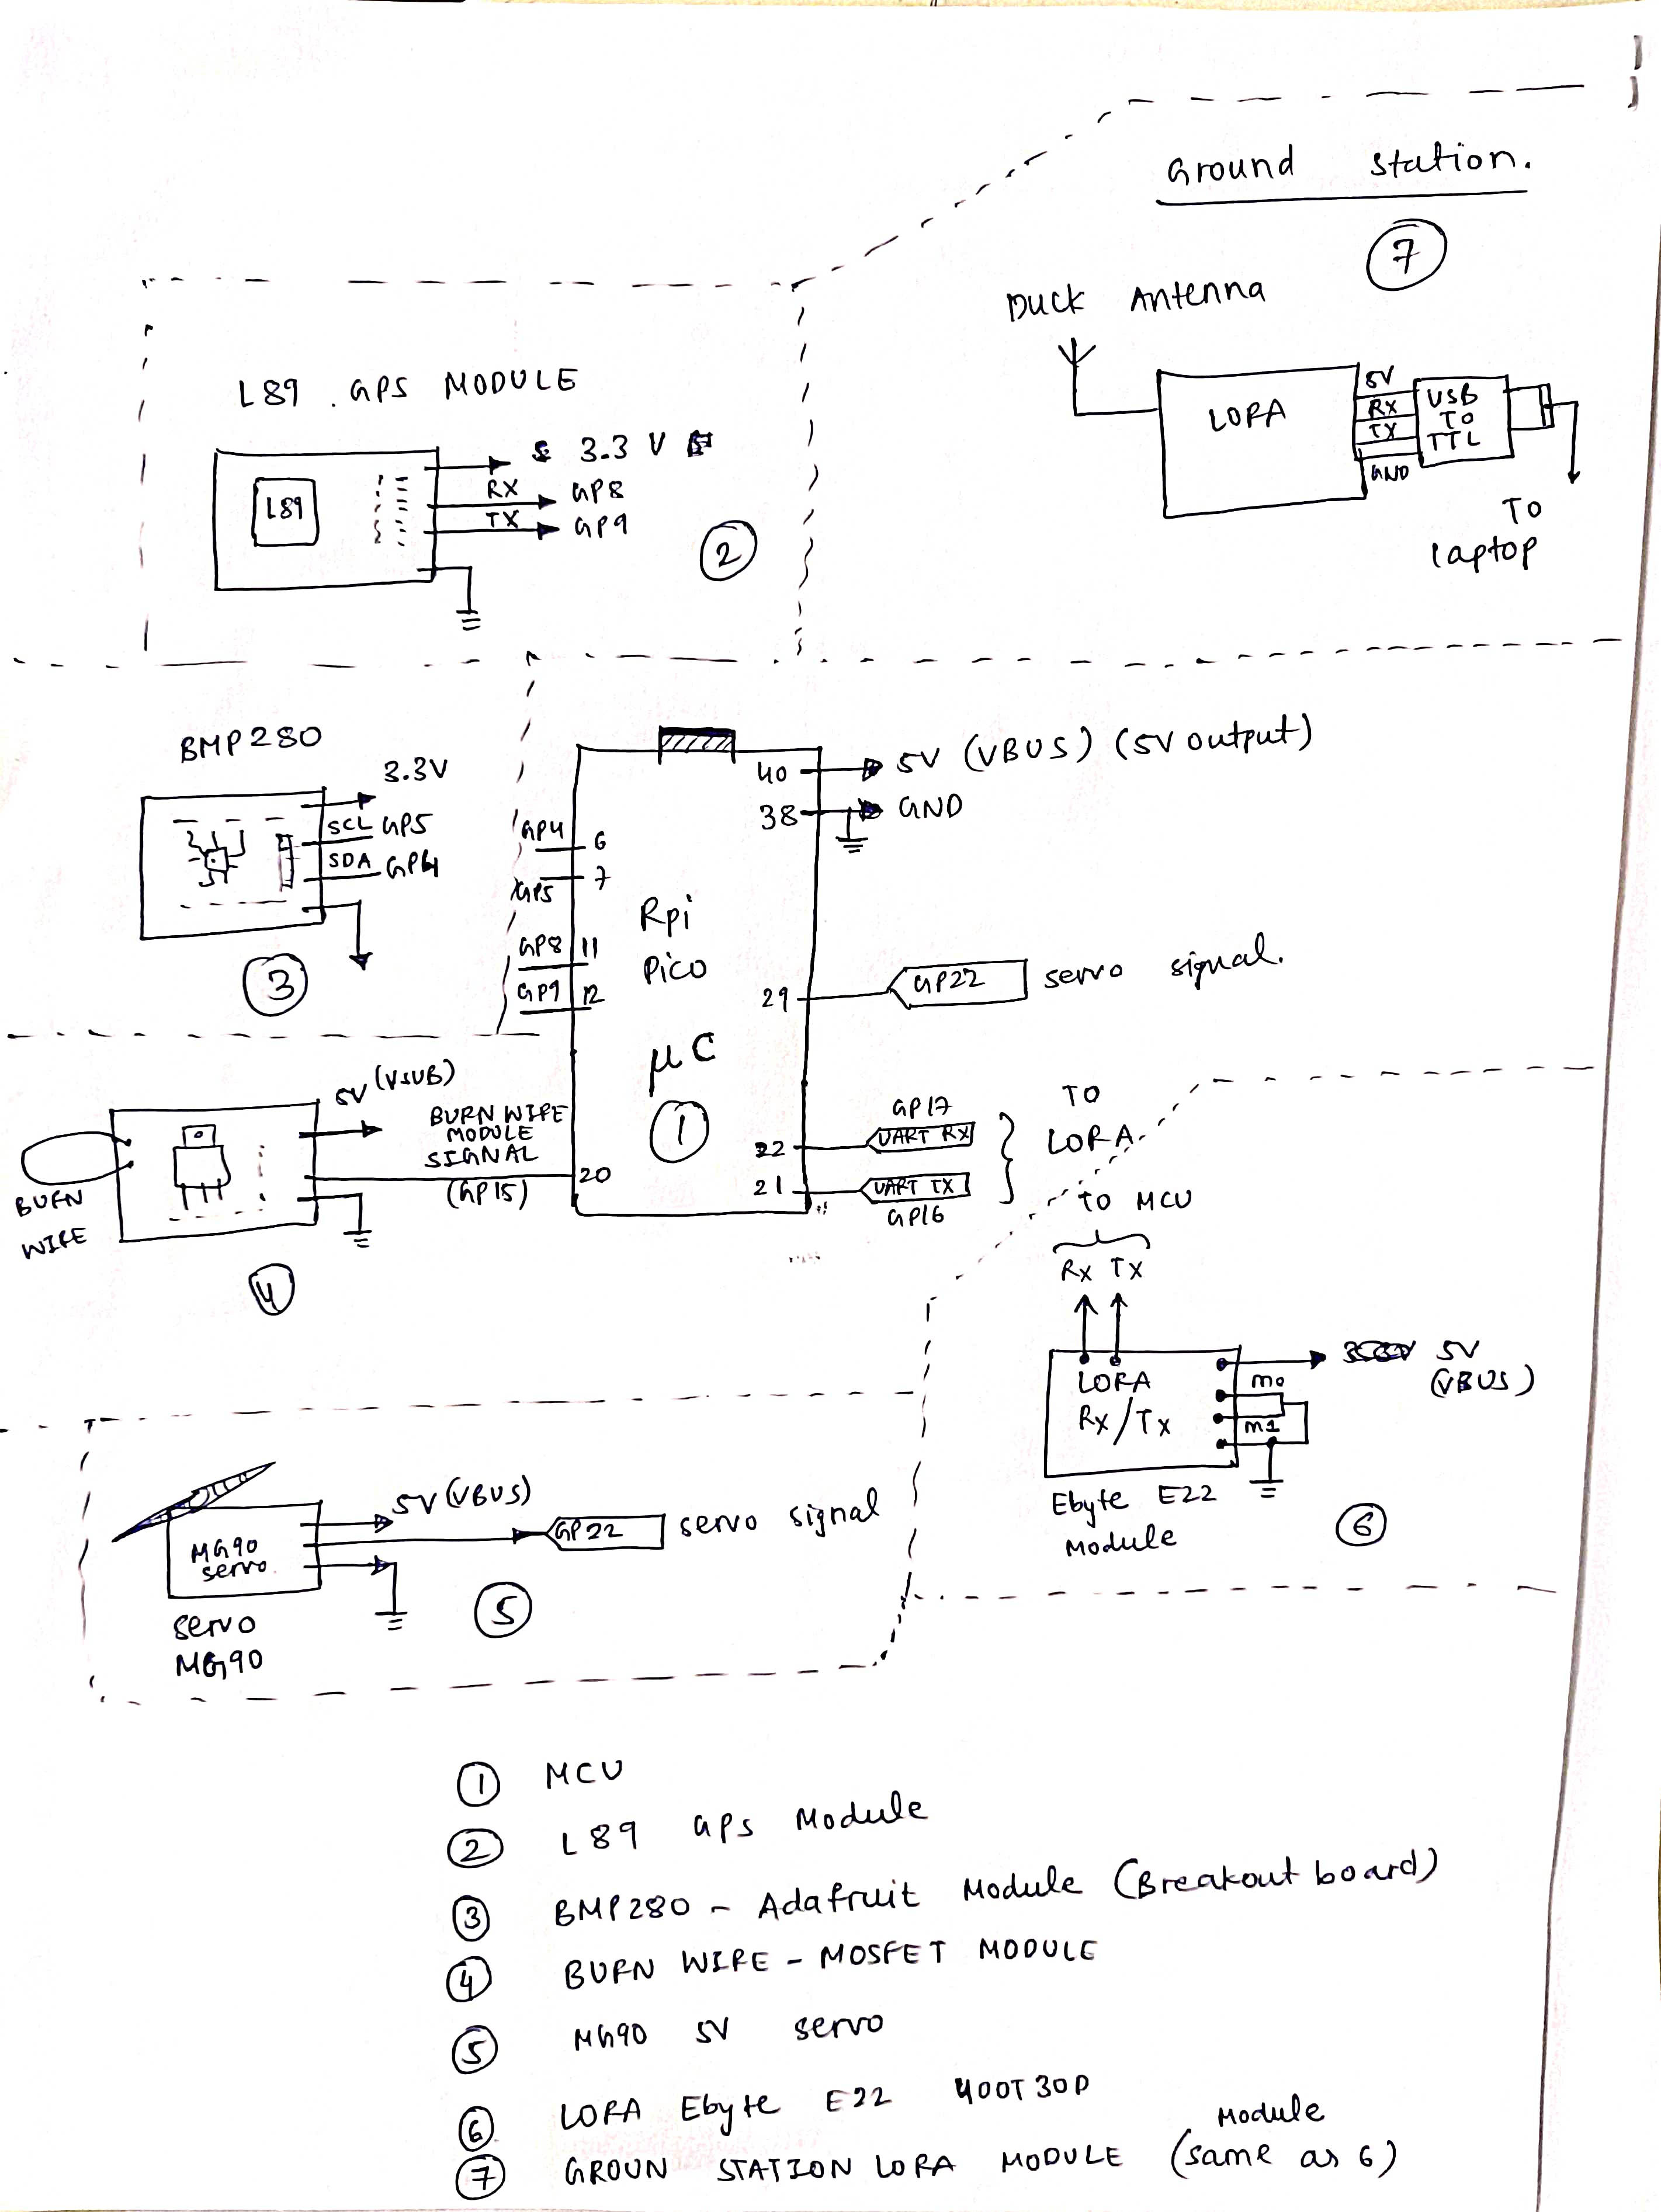 Ground Station.
7
Duck Antenna
LORA
5V
RX
TX
GND
USB
TO
TTL
TO
laptop
L89 . GPS MODULE
L89
3.3 V
RX GP8
TX GP9
2
BMP280
3.3V
SCL GP5
SDA GP4
3
40 5V (VBUS) (5V output)
38 GND
GP4 6
GP5 7
GP8 11
GP9 12
Rpi
Pico
μC
1
29 GP22 servo signal.
GP17
22 UART RX
21 UART TX
GP16
TO
LORA
5V (VSUB)
BURN WIRE
MODULE
SIGNAL
(GP15)
20
BURN
WIRE
4
TO MCU
Rx Tx
LORA
Rx/Tx
5V
(VBUS)
M0
M1
Ebyte E22
Module
6
5V (VBUS)
GP22 servo signal
MG90
servo.
servo
MG90
5
1 MCU
2 L89 GPS Module
3 BMP280 - Adafruit Module (Breakout board)
4 BURN WIRE - MOSFET MODULE
5 MG90 5V servo
6 LORA Ebyte E22 400T30D
7 GROUN STATION LORA MODULE (same as 6)
Module